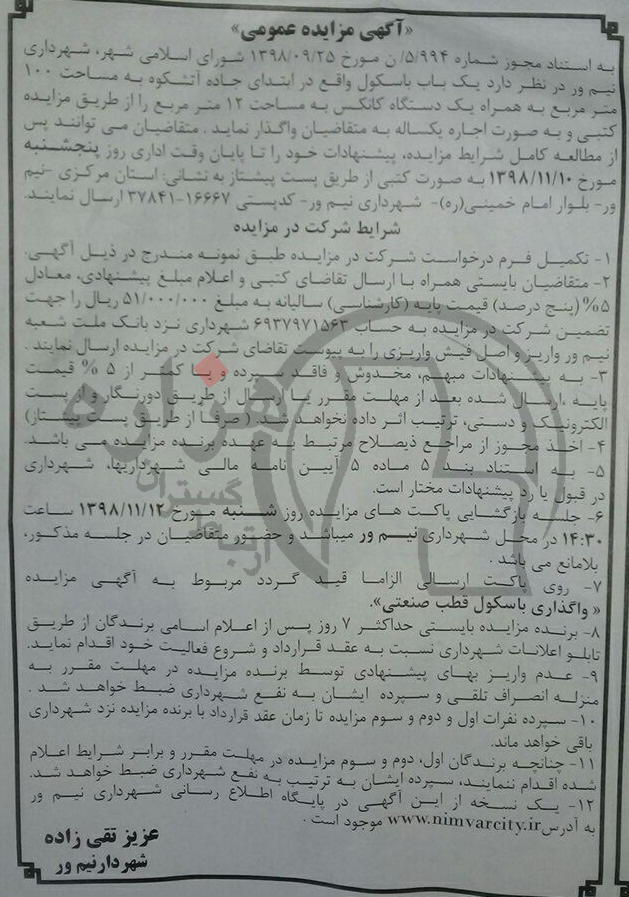 «آگهی مزایده عمومی»
به استناد مجوز شماره ۵/۹۹۴/ ن مورخ ۱۳۹۸/۰۹/۲۵ شورای اسلامی شهر، شهرداری
نیم ور در نظر دارد یک باب باسکول واقع در ابتدای جاده آتشکوه به مساحت ۱۰۰
متر مربع به همراه یک دستگاه کانکس به مساحت ۱۲ متر مربع را از طریق مزایده
کتبی و به صورت اجاره یکساله به متقاضیان واگذار نماید . متقاضیان می توانند پس
از مطالعه کامل شرایط مزایده، پیشنهادات خود را تا پایان وقت اداری روز پنجشنبه
مورخ ۱۳۹۸/۱۱/۱۰ به صورت کتبی از طریق پست پیشتاز به نشانی: استان مرکزی -نیم
ور- بلوار امام خمینی(ره)- شهرداری نیم ور- کدپستی ۱۶۶۶۷-۳۷۸۴۱ ارسال نمایند.
شرایط شرکت در مزایده
۱- تکمیل فرم درخواست شرکت در مزایده طبق نمونه مندرج در ذیل آگهی.
۲- متقاضیان بایستی همراه با ارسال تقاضای کتبی و اعلام مبلغ پیشنهادی، معادل
۵% (پنج درصد) قیمت پایه (کارشناسی) سالیانه به مبلغ ۵۱/۰۰۰/۰۰۰ ریال را جهت
تضمین شرکت در مزایده به حساب ۶۹۳۷۹۷۱۵۶۳ شهرداری نزد بانک ملت شعبه
نیم ور واریز و اصل فیش واریزی را به پیوست تقاضای شرکت در مزایده ارسال نمایند .
۳- به پیشنهادات مبهم، مخدوش و فاقد سپرده و یا کمتر از ۵ % قیمت
پایه ،ارسال شده بعد از مهلت مقرر یا ارسال از طریق دورنگار و از پست
الکترونیک و دستی، ترتیب اثر داده نخواهد شد. ( صرفا از طریق پست پیشتاز)
۴- اخذ مجوز از مراجع ذیصلاح مرتبط به عهده برنده مزایده می باشد.
۵- به استناد بند ۵ ماده ۵ آیین نامه مالی شهرداریها، شهرداری
در قبول یا رد پیشنهادات مختار است.
۶- جلسه بازگشایی پاکت های مزایده روز شنبه مورخ ۱۳۹۸/۱۱/۱۲ ساعت
۱۴:۳۰ در محل شهرداری نیم ور میباشد و حضور متقاضیان در جلسه مذکور،
بلامانع می باشد .
۷- روی پاکت ارسالی الزاما قید گردد مربوط به آگهی مزایده
« واگذاری باسکول قطب صنعتی».
۸- برنده مزایده بایستی حداکثر ۷ روز پس از اعلام اسامی برندگان از طریق
تابلو اعلانات شهرداری نسبت به عقد قرارداد و شروع فعالیت خود اقدام نماید.
۹- عدم واریز بهای پیشنهادی توسط برنده مزایده در مهلت مقرر به
منزله انصراف تلقی و سپرده ایشان به نفع شهرداری ضبط خواهد شد .
۱۰- سپرده نفرات اول و دوم و سوم مزایده تا زمان عقد قرارداد با برنده مزایده نزد شهرداری
باقی خواهد ماند.
۱۱- چنانچه برندگان اول، دوم و سوم مزایده در مهلت مقرر و برابر شرایط اعلام
شده اقدام ننمایند، سپرده ایشان به ترتیب به نفع شهرداری ضبط خواهد شد.
۱۲- یک نسخه از این آگهی در پایگاه اطلاع رسانی شهرداری نیم ور
به آدرس www.nimvarcity.ir موجود است .
عزیز تقی زاده
شهردار نیم ور
هزاره
گستران
ارتباط